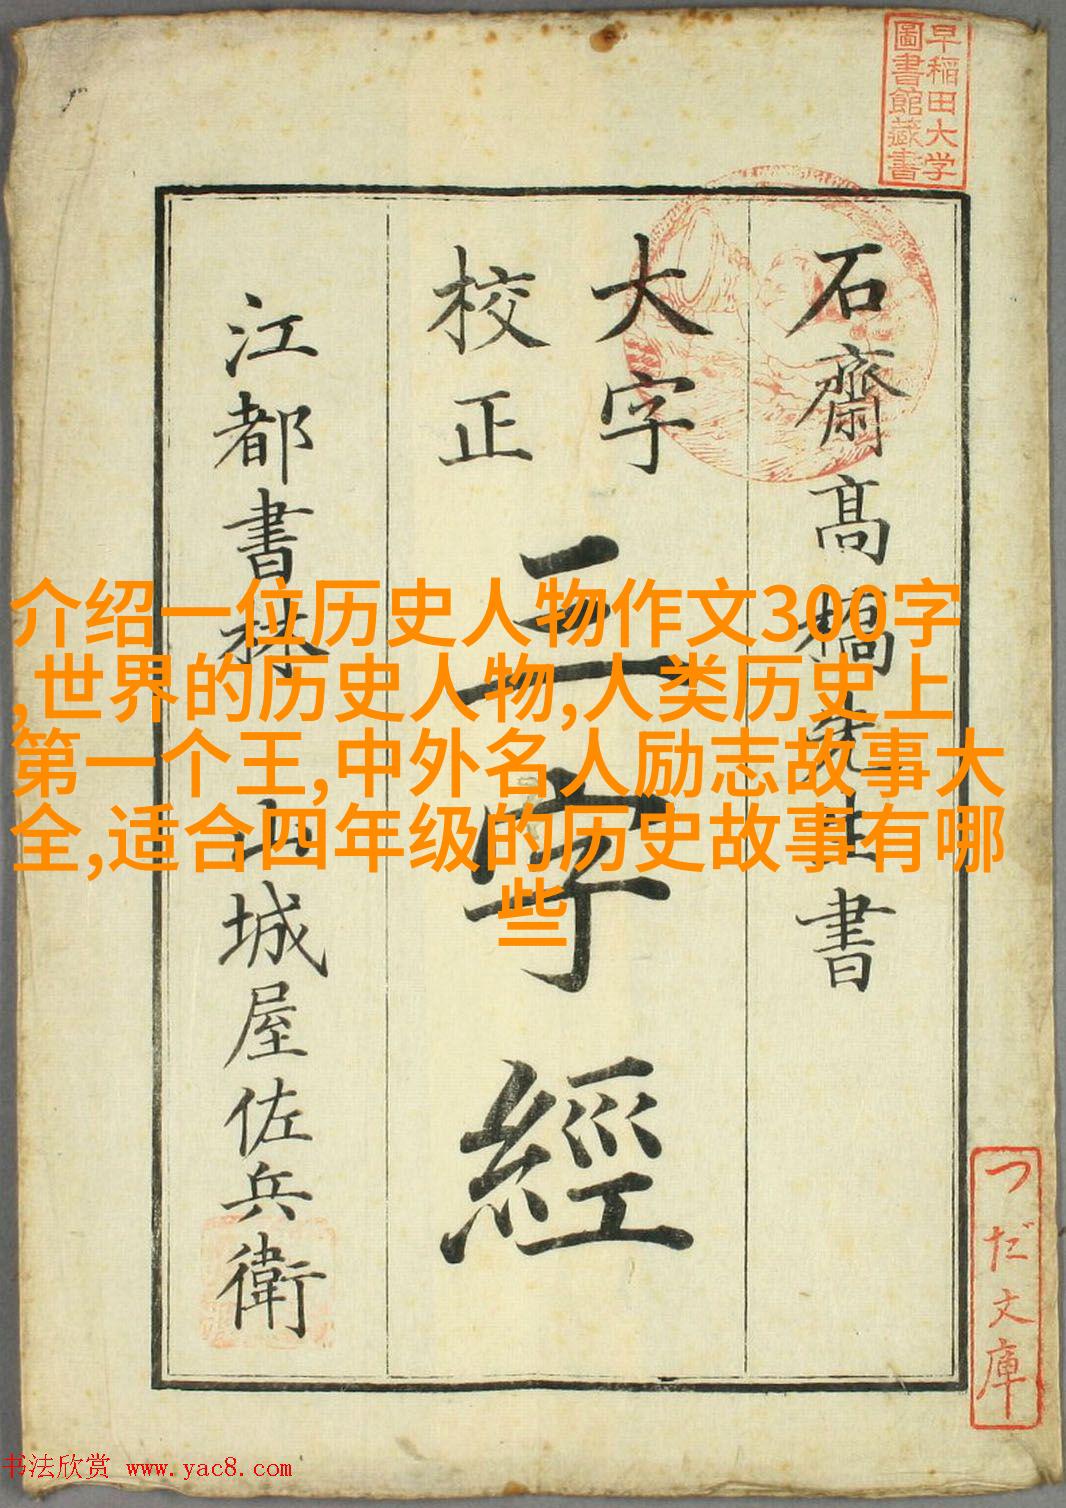 早稲田大学
圖書館蔵書
石齋高橋先生書
大字
校正
三字經
江都書林 山城屋佐兵衛
介绍一位历史人物作文300字
,世界的历史人物,人类历史上
第一个王,中外名人励志故事大
全,适合四年级的历史故事有哪
些
つだ文庫
书法欣赏 www.yac8.com